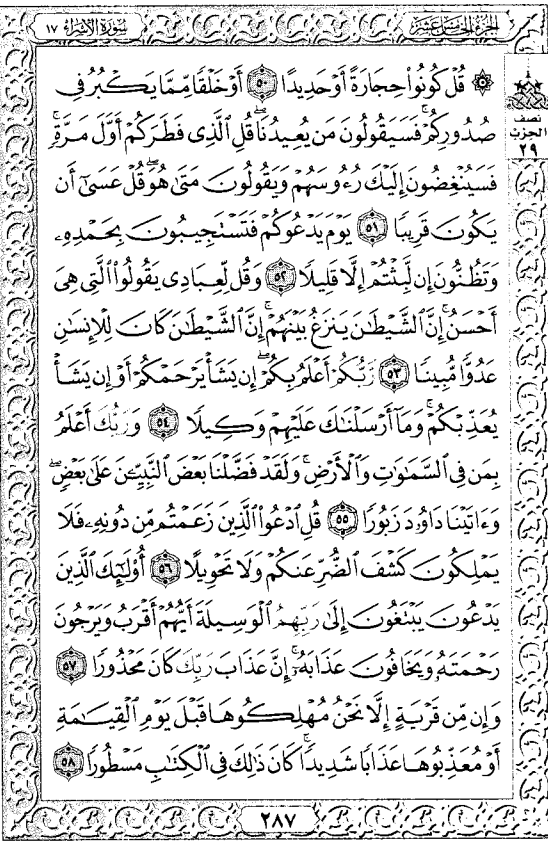 الجزء الخامس عشر
سورة الإسراء ١٧
نصف
الحزب
٢٩
۞ قُلۡ كُونُواْ حِجَارَةً أَوۡ حَدِيدًا ٥٠ أَوۡ خَلۡقٗا مِّمَّا يَكۡبُرُ فِي
صُدُورِكُمۡۚ فَسَيَقُولُونَ مَن يُعِيدُنَاۖ قُلِ ٱلَّذِي فَطَرَكُمۡ أَوَّلَ مَرَّةٖۚ
فَسَيُنۡغِضُونَ إِلَيۡكَ رُءُوسَهُمۡ وَيَقُولُونَ مَتَىٰ هُوَۖ قُلۡ عَسَىٰٓ أَن
يَكُونَ قَرِيبٗا ٥١ يَوۡمَ يَدۡعُوكُمۡ فَتَسۡتَجِيبُونَ بِحَمۡدِهِۦ
وَتَظُنُّونَ إِن لَّبِثۡتُمۡ إِلَّا قَلِيلٗا ٥٢ وَقُل لِّعِبَادِي يَقُولُواْ ٱلَّتِي هِيَ
أَحۡسَنُۚ إِنَّ ٱلشَّيۡطَٰنَ يَنزَغُ بَيۡنَهُمۡۚ إِنَّ ٱلشَّيۡطَٰنَ كَانَ لِلۡإِنسَٰنِ
عَدُوّٗا مُّبِينٗا ٥٣ رَّبُّكُمۡ أَعۡلَمُ بِكُمۡۖ إِن يَشَأۡ يَرۡحَمۡكُمۡ أَوۡ إِن يَشَأۡ
يُعَذِّبۡكُمۡۚ وَمَآ أَرۡسَلۡنَٰكَ عَلَيۡهِمۡ وَكِيلٗا ٥٤ وَرَبُّكَ أَعۡلَمُ
بِمَن فِي ٱلسَّمَٰوَٰتِ وَٱلۡأَرۡضِۗ وَلَقَدۡ فَضَّلۡنَا بَعۡضَ ٱلنَّبِيِّـۧنَ عَلَىٰ بَعۡضٖۖ
وَءَاتَيۡنَا دَاوُۥدَ زَبُورٗا ٥٥ قُلِ ٱدۡعُواْ ٱلَّذِينَ زَعَمۡتُم مِّن دُونِهِۦ فَلَا
يَمۡلِكُونَ كَشۡفَ ٱلضُّرِّ عَنكُمۡ وَلَا تَحۡوِيلًا ٥٦ أُوْلَٰٓئِكَ ٱلَّذِينَ
يَدۡعُونَ يَبۡتَغُونَ إِلَىٰ رَبِّهِمُ ٱلۡوَسِيلَةَ أَيُّهُمۡ أَقۡرَبُ وَيَرۡجُونَ
رَحۡمَتَهُۥ وَيَخَافُونَ عَذَابَهُۥٓۚ إِنَّ عَذَابَ رَبِّكَ كَانَ مَحۡذُورٗا ٥٧
وَإِن مِّن قَرۡيَةٍ إِلَّا نَحۡنُ مُهۡلِكُوهَا قَبۡلَ يَوۡمِ ٱلۡقِيَٰمَةِ
أَوۡ مُعَذِّبُوهَا عَذَابٗا شَدِيدٗاۚ كَانَ ذَٰلِكَ فِي ٱلۡكِتَٰبِ مَسۡطُورٗا ٥٨
٢٨٧